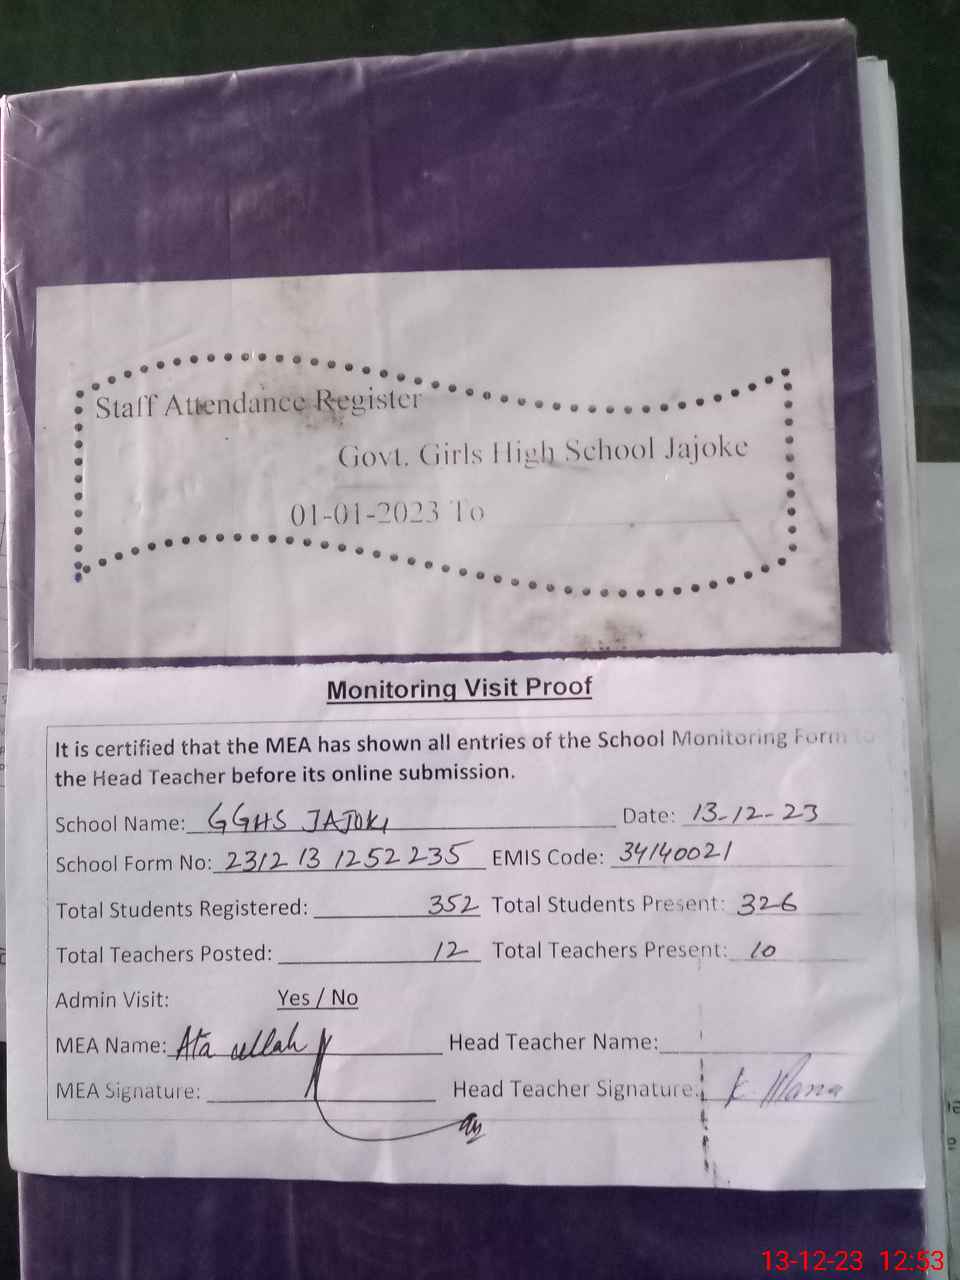 Staff Attendance Register
Govt. Girls High School Jajoke
01-01-2023 To
Monitoring Visit Proof
It is certified that the MEA has shown all entries of the School Monitoring Form to
the Head Teacher before its online submission.
School Name: GGHS JAJOKI Date: 13-12-23
School Form No: 2312 13 1252 235 EMIS Code: 34140021
Total Students Registered: 352 Total Students Present: 326
Total Teachers Posted: 12 Total Teachers Present: 10
Admin Visit: Yes / No
MEA Name: Ata ullah Head Teacher Name:
MEA Signature: Head Teacher Signature:
13-12-23 12:53